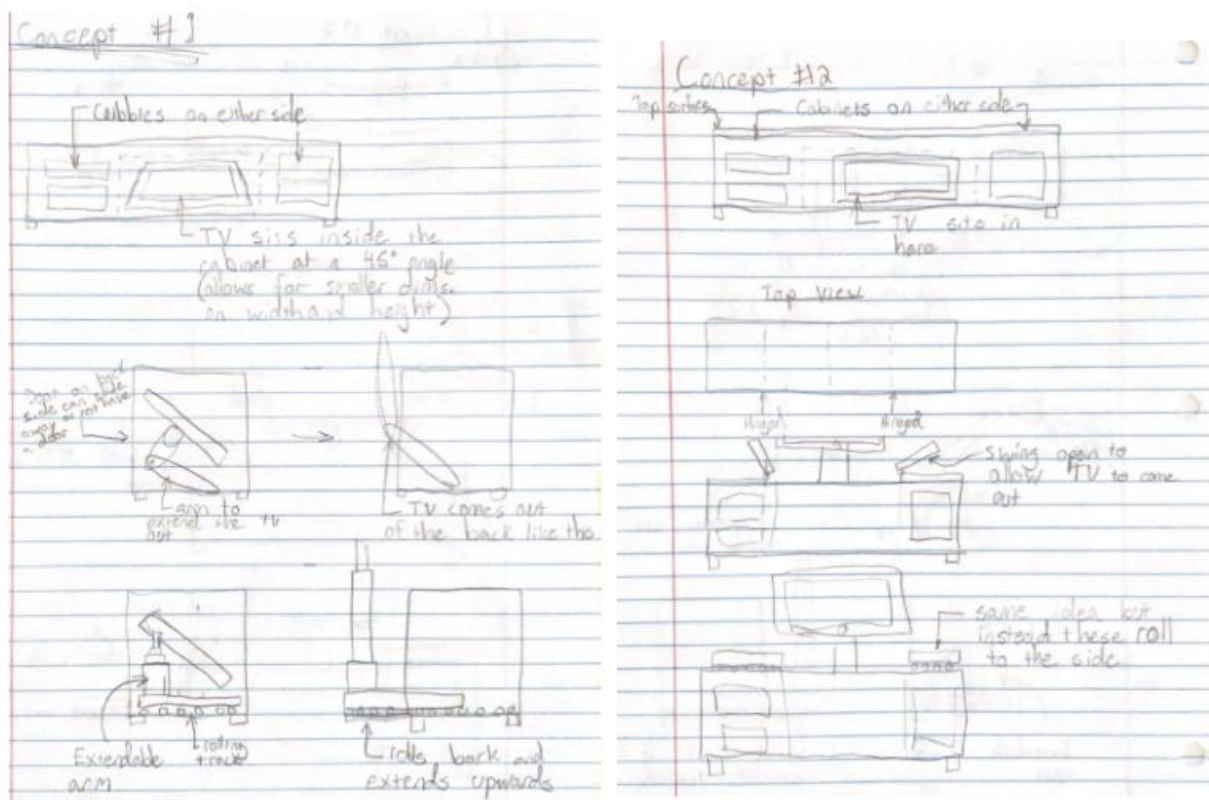 Concept #1
Cubbies on either side
TV sits inside the
cabinet at a 45° angle
(allows for smaller dims.
on width and height)
Door on back
side can slide
away or not have
a door
arm to
extend the TV
out
TV comes out
of the back like this
Extendable
arm
rolling
track
rolls back and
extends upwards
Concept #12
Top surface
Cabinets on either side
TV sits in
here
Top View
Hinged
Hinged
Swing open to
allow TV to come
out
same idea but
instead these roll
to the side